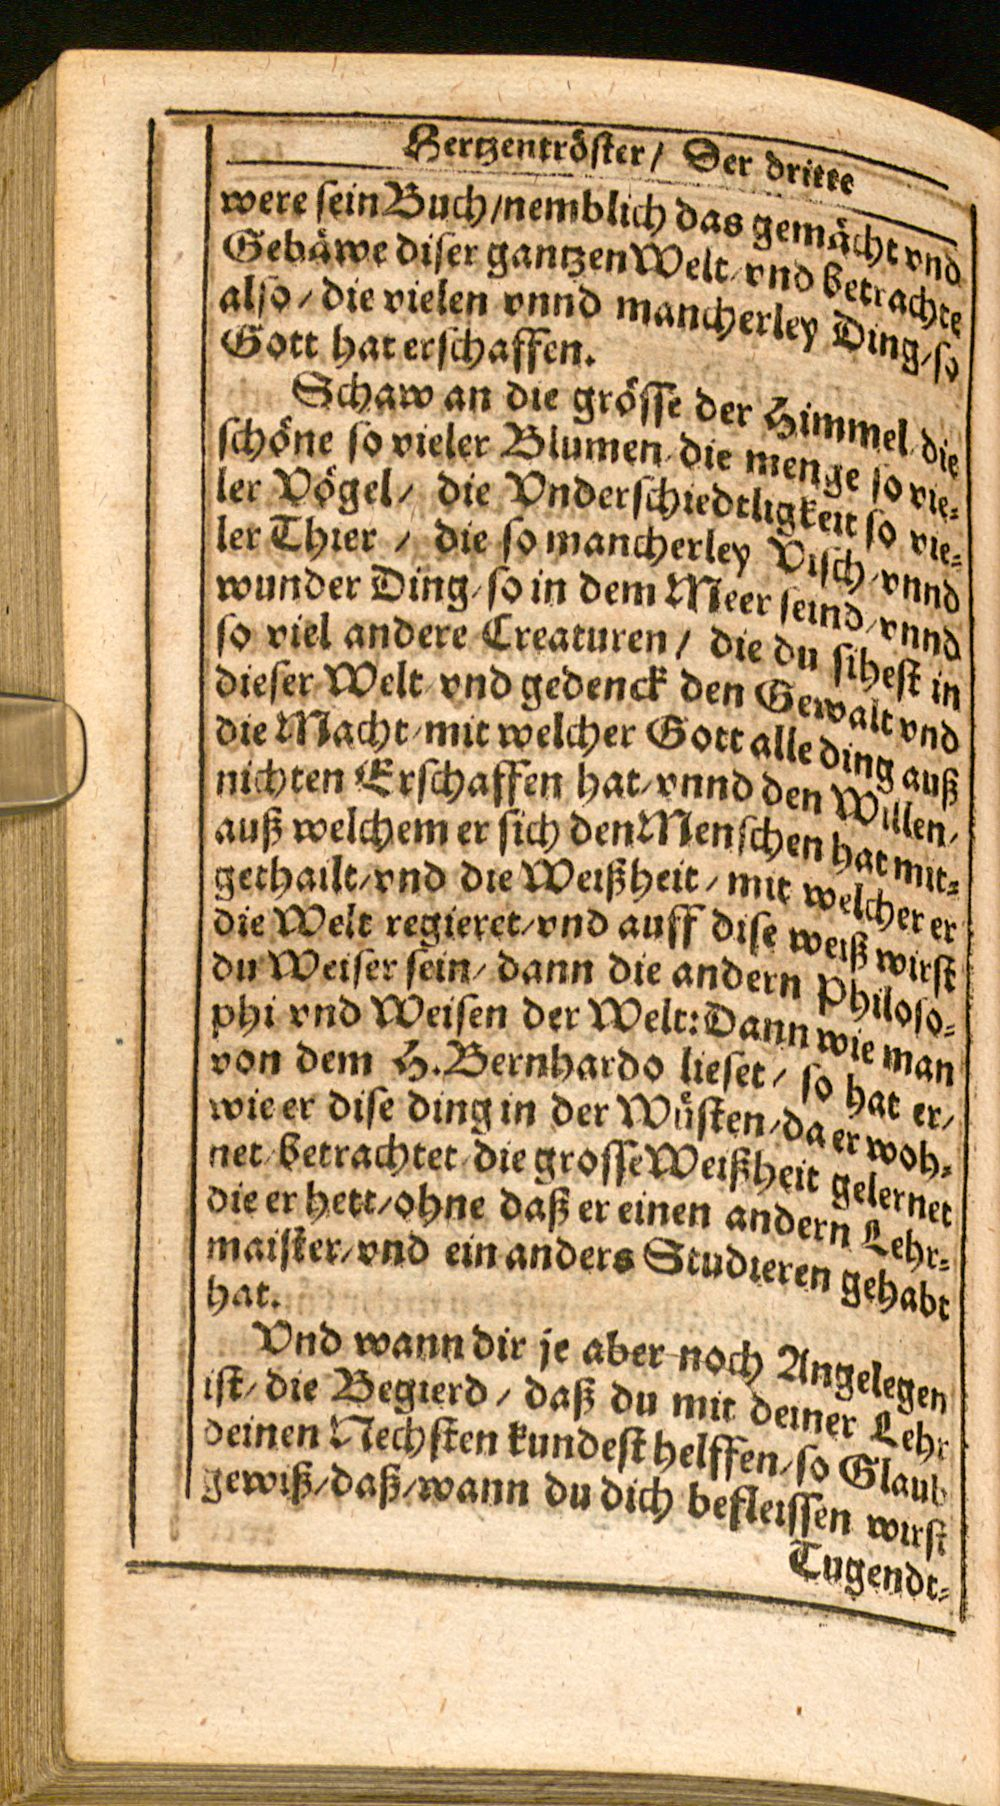 Hertzentröster/ Der dritte
were sein Buch/nemblich das gemächt vnd
Gebäwe diser gantzen Welt/vnd betrachte
also/die vielen vnnd mancherley Ding/so
Gott hat erschaffen.
Schaw an die grösse der Himmel/die
schöne so vieler Blumen/die menge so vie-
ler Vögel/ die Vnderschiedtligkeit so vie-
ler Thier / die so mancherley Visch/vnnd
wunder Ding/so in dem Meer seind/vnnd
so viel andere Creaturen / die du sihest in
dieser Welt/vnd gedenck den Gewalt vnd
die Macht/mit welcher Gott alle ding auß
nichten Erschaffen hat/vnnd den Willen/
auß welchem er sich den Menschen hat mit-
gethailt/vnd die Weißheit/mit welcher er
die Welt regieret/vnd auff dise weiß wirst
du Weiser sein/ dann die andern Philoso-
phi vnd Weisen der Welt: Dann wie man
von dem H. Bernhardo lieset/ so hat er/
wie er dise ding in der Wüsten/da er woh-
net/betrachtet/die grosse Weißheit gelernet
die er hett/ohne daß er einen andern Lehr-
maister/vnd ein anders Studieren gehabt
hat.
Vnd wann dir je aber noch Angelegen
ist/ die Begierd / daß du mit deiner Lehr
deinen Nechsten kundest helffen/so Glaub
gewiß/daß/wann du dich befleissen wirst
Tugendt-